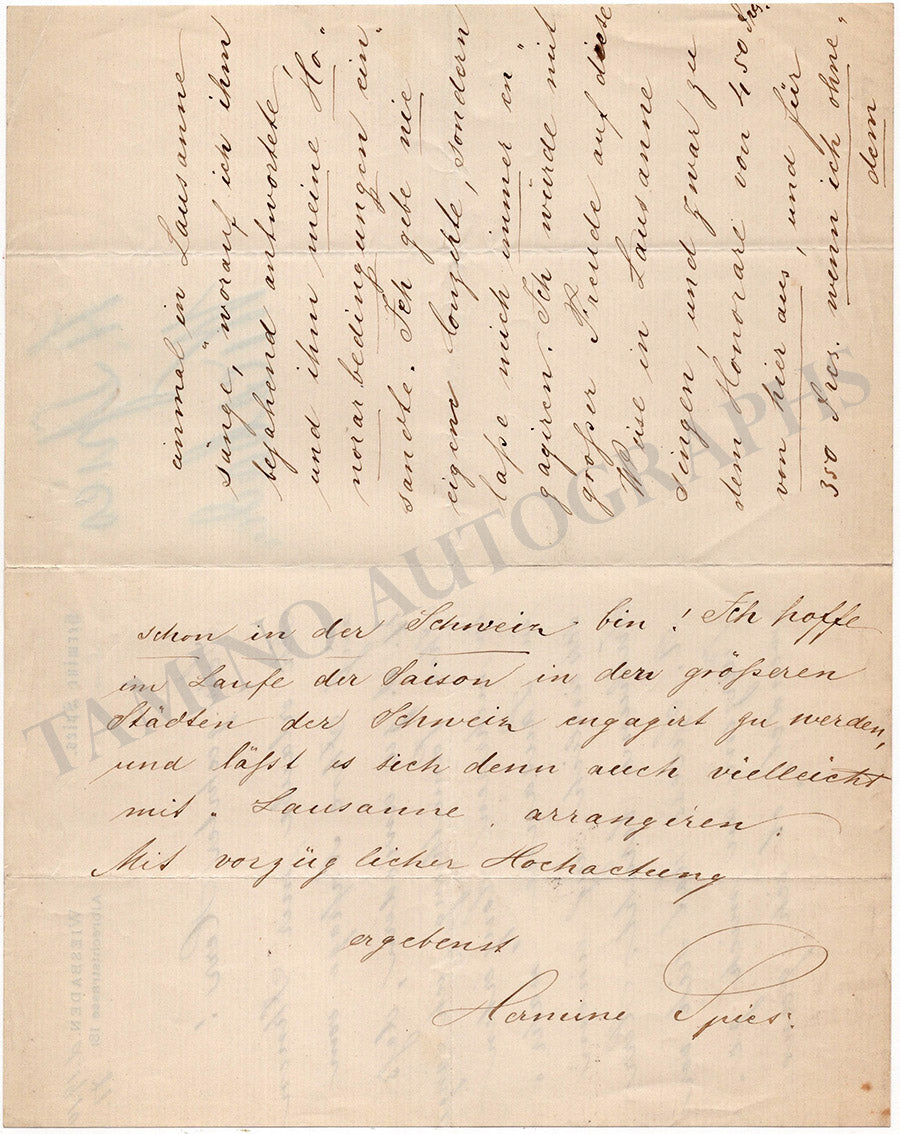 einmal in Lausanne
sänge", worauf ich ihm
bejahend antwortete
und ihm meine Ho„
norarbedingungen ein„
sandte. Ich gebe nie
eigene Conzerte, sondern
laße mich immer en„
gagiren. Ich würde mit
großer Freude auf diese
Weise in Lausanne
singen, und zwar zu
dem Honorare von 450 Frs.
von hier aus, und für
350 Frcs. wenn ich ohne„
dem
schon in der Schweiz bin! Ich hoffe
im Laufe der Saison in den größeren
Städten der Schweiz engagirt zu werden,
und läßt es sich denn auch vielleicht
mit Lausanne arrangiren.
Mit vorzüglicher Hochachtung
ergebenst
Hermine Spies.
TAMINO AUTOGRAPHS
WIESBADEN